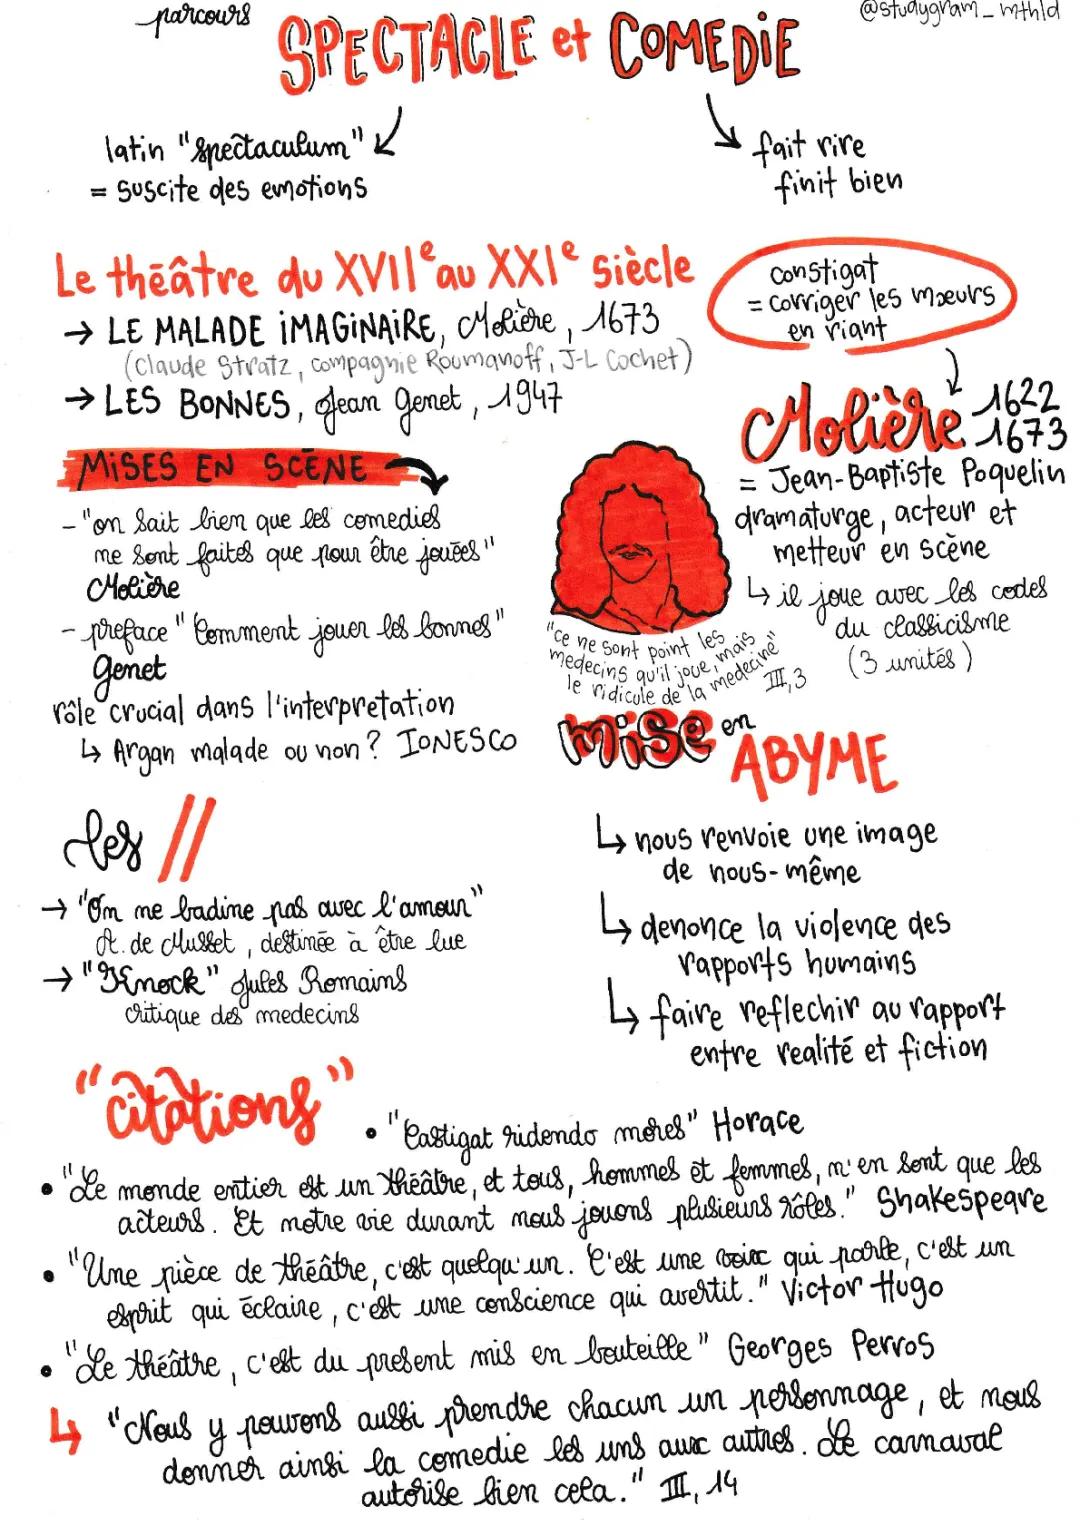 parcours
@studygram_mthld
SPECTACLE et COMEDiE
latin "spectaculum"
= suscite des emotions
fait rire
finit bien
Le théâtre du XVIIe au XXIe siècle
→ LE MALADE iMAGiNAiRE, Molière, 1673
(Claude Stratz, compagnie Roumanoff, J-L Cochet)
→ LES BONNES, Jean Genet, 1947
constigat
= corriger les mœurs
en riant
Molière 1622
1673
= Jean-Baptiste Poquelin
dramaturge, acteur et
metteur en scène
↳ il joue avec les codes
du classicisme
(3 unités)
MiSES EN SCÈNE
- "on sait bien que les comedies
ne sont faites que pour être jouées"
Molière
- preface "Comment jouer les bonnes"
Genet
rôle crucial dans l'interpretation
↳ Argan malade ou non? IONESCO
"ce ne sont point les
medecins qu'il joue, mais
le ridicule de la medecine"
III, 3
mise en
ABYME
↳ nous renvoie une image
de nous-même
↳ denonce la violence des
rapports humains
↳ faire reflechir au rapport
entre realité et fiction
les //
→ "On ne badine pas avec l'amour"
A. de Musset, destinée à être lue
→ "Knock" Jules Romains
critique des medecins
"citations"
• "Castigat ridendo mores" Horace
• "Le monde entier est un théâtre, et tous, hommes et femmes, n'en sont que les
acteurs. Et notre vie durant nous jouons plusieurs rôles." Shakespeare
• "Une pièce de théâtre, c'est quelqu'un. C'est une voix qui parle, c'est un
esprit qui éclaire, c'est une conscience qui avertit." Victor Hugo
• "Le théâtre, c'est du present mis en bouteille" Georges Perros
↳ "Nous y pouvons aussi prendre chacun un personnage, et nous
donner ainsi la comedie les uns aux autres. Le carnaval
autorise bien cela." III, 14